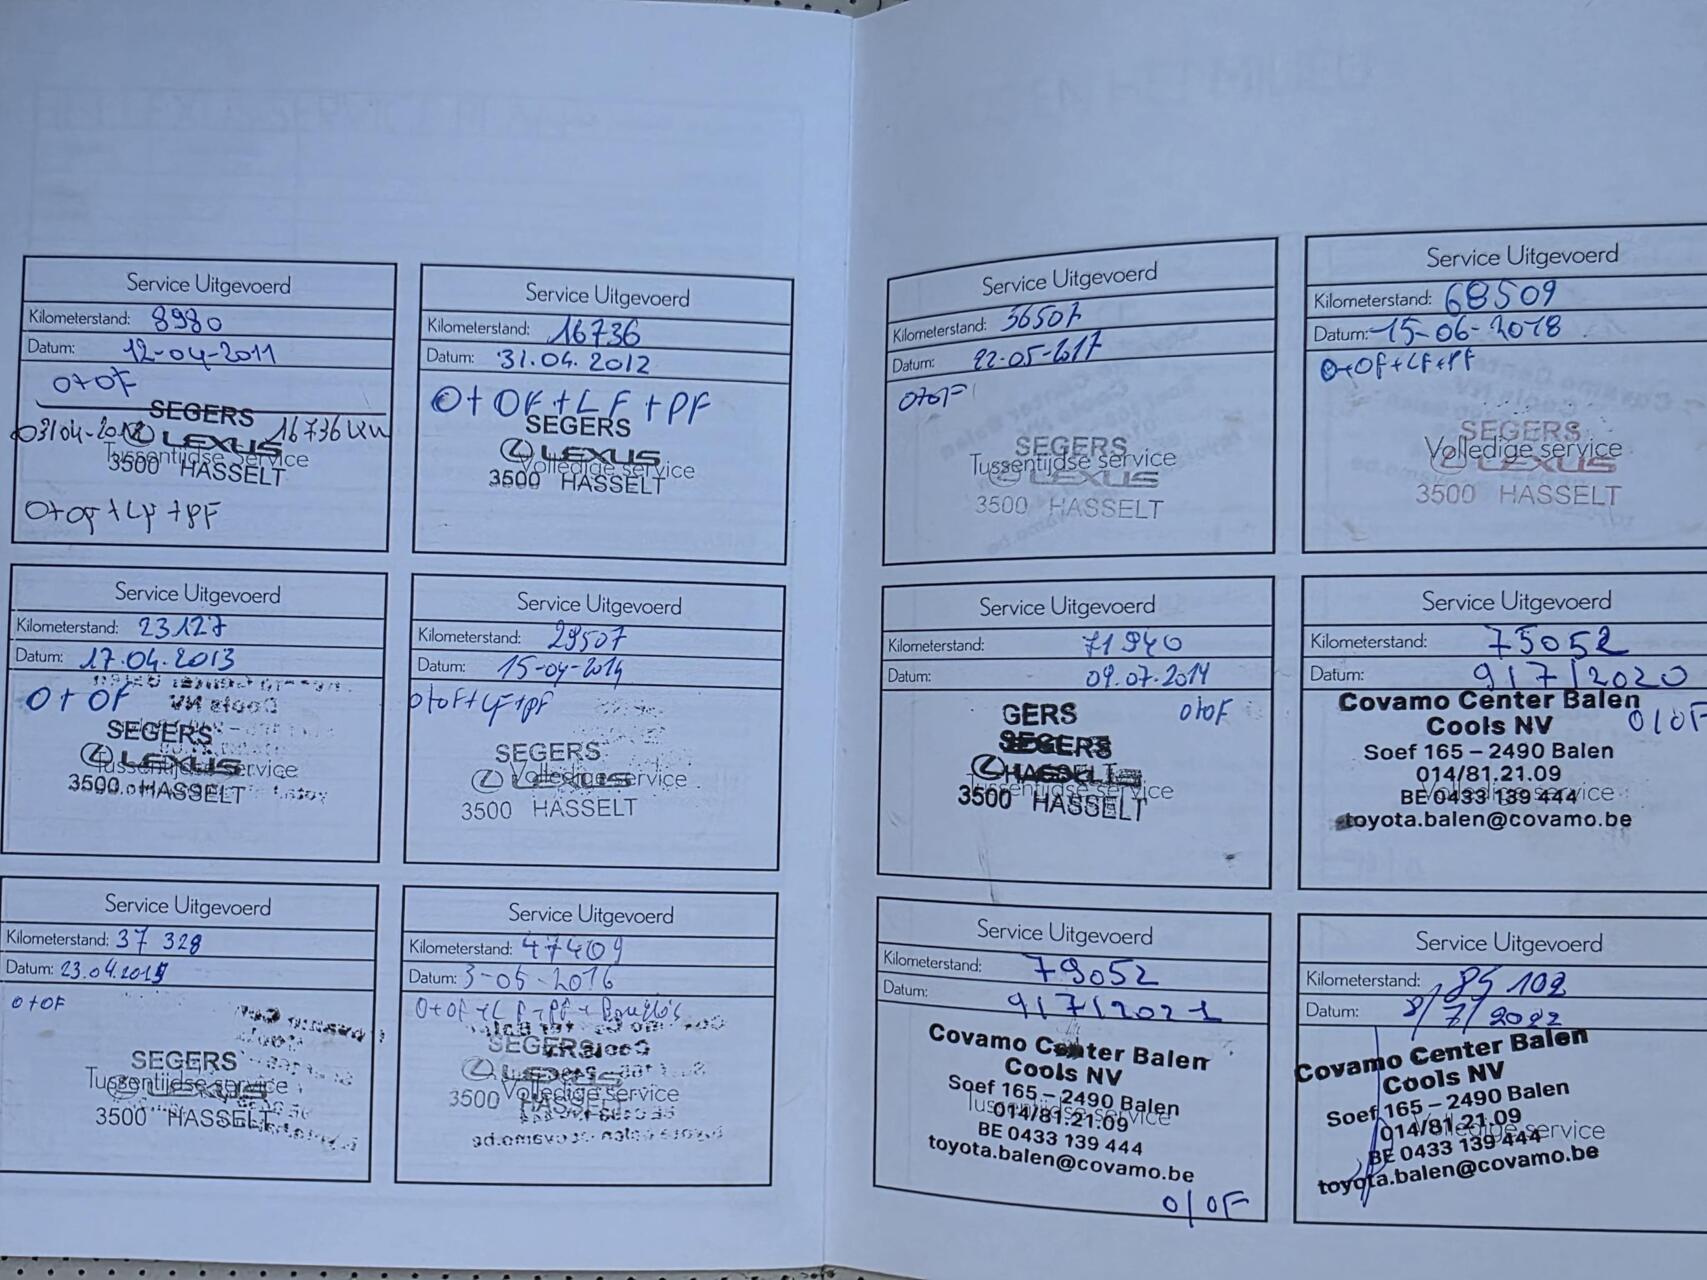 Service Uitgevoerd
Kilometerstand: 8980
Datum: 12-04-2011
O+OF
SEGERS
03/04-2012 LEXUS 16736 km
Tussentijdse service
3500 HASSELT
O+OF+LF+PF
Service Uitgevoerd
Kilometerstand: 16736
Datum: 31.04.2012
O+OF+LF+PF
SEGERS
LEXUS
Volledige service
3500 HASSELT
Service Uitgevoerd
Kilometerstand: 23127
Datum: 17.04.2013
O+OF
SEGERS
LEXUS
Tussentijdse service
3500 HASSELT
Service Uitgevoerd
Kilometerstand: 29507
Datum: 15-04-2014
O+OF+LF+PF
SEGERS
Volledige service
3500 HASSELT
Service Uitgevoerd
Kilometerstand: 37 328
Datum: 23.04.2015
O+OF
SEGERS
Tussentijdse service
3500 HASSELT
Service Uitgevoerd
Kilometerstand: 47409
Datum: 3-05-2016
O+OF+LF+PF+
SEGERS
LEXUS
Volledige service
3500 HASSELT
Service Uitgevoerd
Kilometerstand: 56507
Datum: 22-05-2017
O+OF
SEGERS
Tussentijdse service
LEXUS
3500 HASSELT
Service Uitgevoerd
Kilometerstand: 68509
Datum: 15-06-2018
O+OF+LF+PF
SEGERS
Volledige service
LEXUS
3500 HASSELT
Service Uitgevoerd
Kilometerstand: 71940
Datum: 09.07.2014
O+OF
GERS
SEGERS
HASSELT
Tussentijdse service
3500 HASSELT
Service Uitgevoerd
Kilometerstand: 75052
Datum: 9/7/2020
Covamo Center Balen
Cools NV O/OF
Soef 165 – 2490 Balen
014/81.21.09
Volledige service
BE 0433 139 444
toyota.balen@covamo.be
Service Uitgevoerd
Kilometerstand: 79052
Datum: 9/7/2021
Covamo Center Balen
Cools NV
Soef 165 – 2490 Balen
Tussentijdse service
014/81.21.09
BE 0433 139 444
toyota.balen@covamo.be
O/OF
Service Uitgevoerd
Kilometerstand: 85102
Datum: 8/7/2022
Covamo Center Balen
Cools NV
Soef 165 – 2490 Balen
014/81.21.09
Volledige service
BE 0433 139 444
toyota.balen@covamo.be